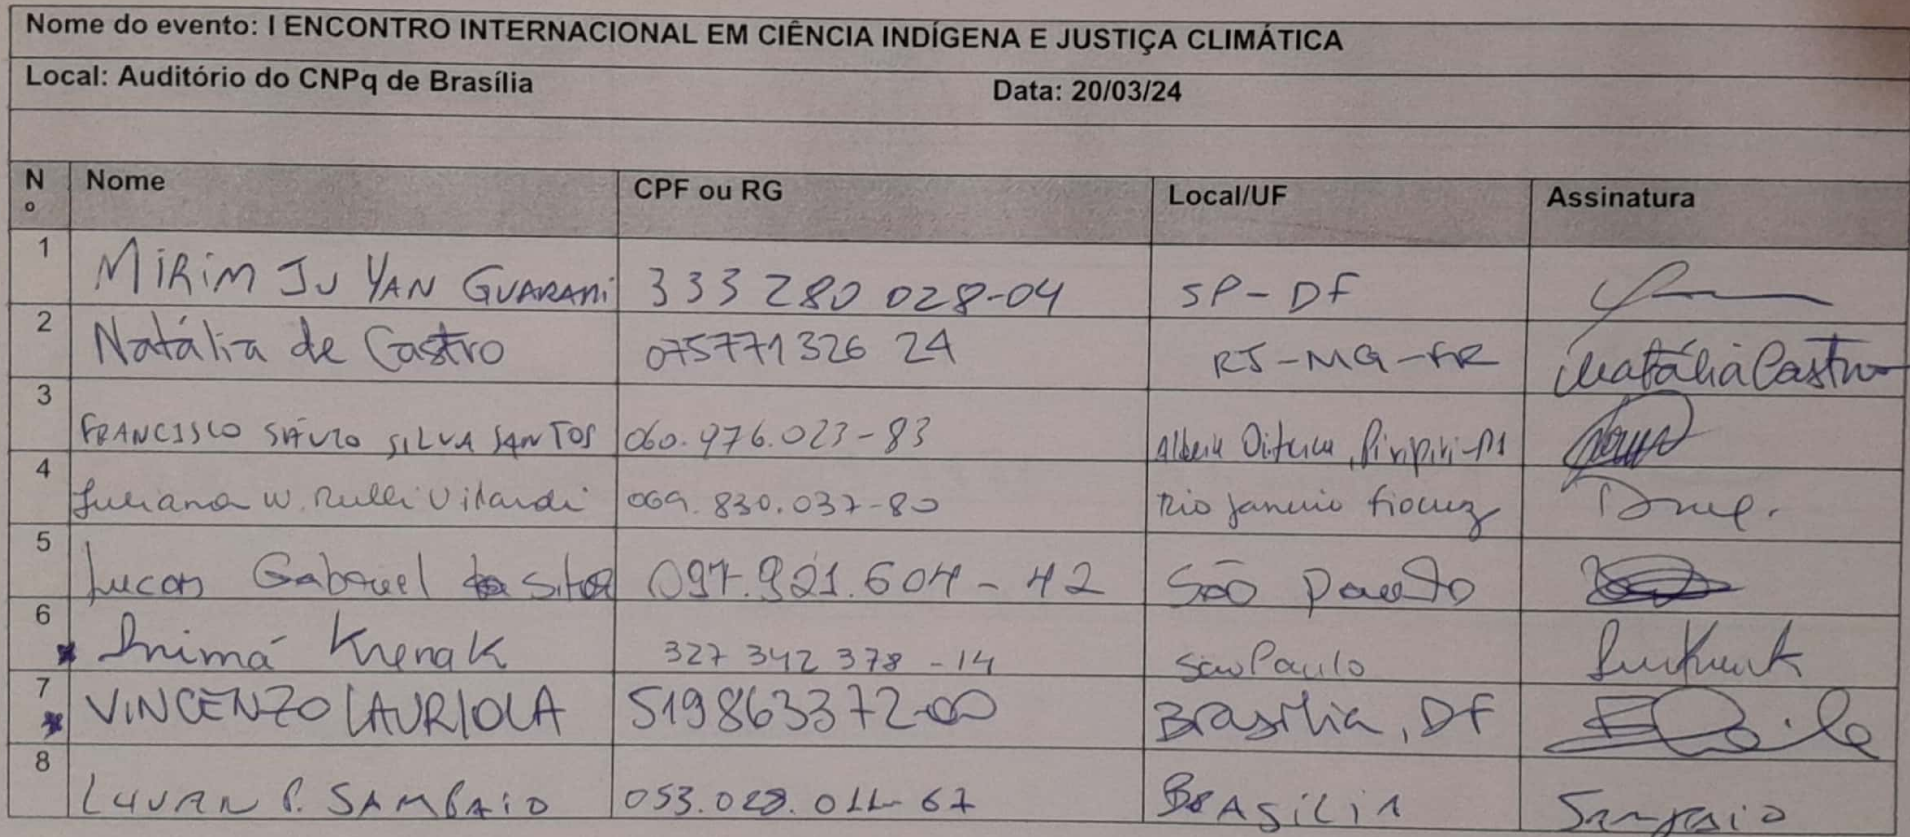 Nome do evento: I ENCONTRO INTERNACIONAL EM CIÊNCIA INDÍGENA E JUSTIÇA CLIMÁTICA
Local: Auditório do CNPq de Brasília Data: 20/03/24
Nº Nome CPF ou RG Local/UF Assinatura
1 MIRIM JU YAN GUARANI 333 280 028-04 SP-DF
2 Natália de Castro 075771326 24 RJ-MG-FR Natália Castro
3 FRANCISCO SÁVIO SILVA SANTOS 060.976.023-83 Piripiri-PI
4 Juliana W. Rulli Vilardi 069.830.037-80 Rio janeiro fiocruz
5 Lucas Gabriel da Silva 097.921.604-42 São Paulo
6 Inimá Krenak 327 342 378-14 São Paulo
7 VINCENZO LAURIOLA 519863372-00 Brasília, DF
8 LUVAN P. SAMPAIO 053.028.011-67 BRASÍLIA Sampaio